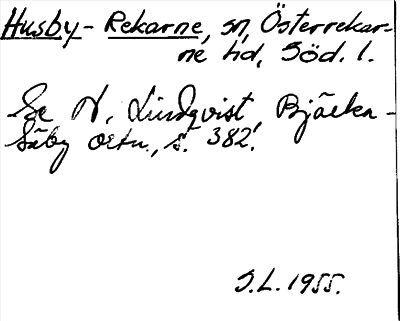 Husby-Rekarne, sn, Österrekar-
ne hd, Söd. l.
Se N. Lindqvist, Bjärka-
Säby ortn., s. 382.
S.L. 1955.